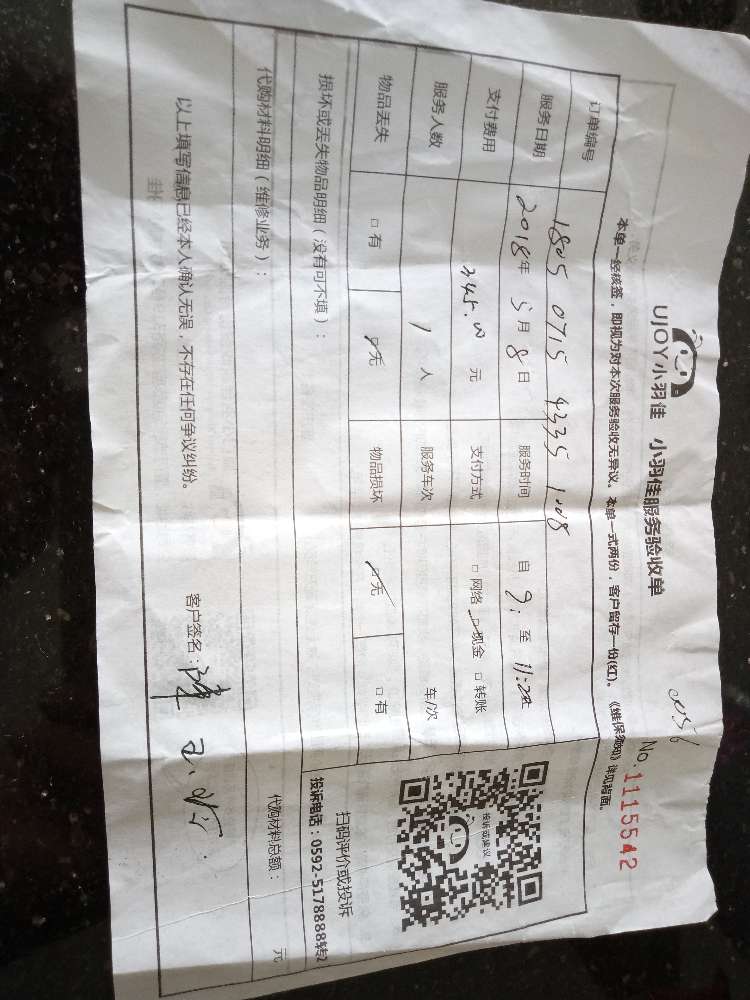 UJOY小羽佳 小羽佳服务验收单
No.1115542
本单一经核签，即视为对本次服务验收无异议。本单一式两份，客户留存一份(红)。《维保须知》详见背面。
订单编号 1805 0715 4335 1008
服务日期 2018年 5月 8日 服务时间 自 9: 至 11:20
支付费用 345.00 元 支付方式 □网络 □现金 □转账
服务人数 1 人 服务车次 车/次
物品丢失 □有 □无 物品损坏 □无 □有
损坏或丢失物品明细（没有可不填）：
代购材料明细（维修业务）：
代购材料总额： 元
投诉或建议
扫码评价或投诉
投诉电话：0592-5178888转2
以上填写信息已经本人确认无误，不存在任何争议纠纷。
客户签名：